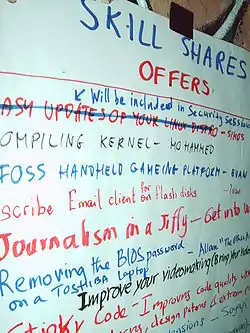 SKILL SHARES
OFFERS
Will be included in Security Sess
ASY UPDATES OF YOUR LINUX DISTRO - SIMOS
OMPILING KERNEL - MOHAMMED
FOSS HANDHELD GAMEING PLATFORM - EVAN
scribe Email client for on Flash disks
Journalism in a Jiffy - Get into
Removing the BIOS password - Allan "The
on a Toshiba laptop
Improve your videomaking (Bring your video
Sticky Code - Improves code quality
design patterns & extrem